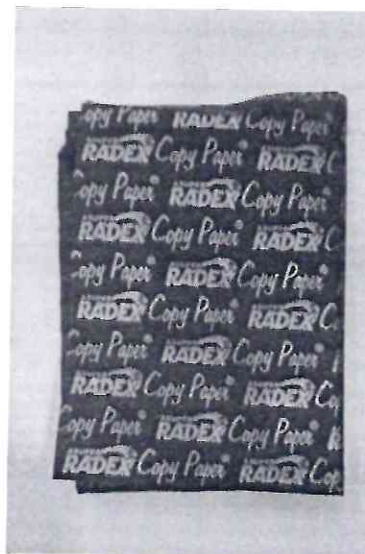 Copy Paper RADEX Copy Paper
RADEX Copy Paper RADEX C
Copy Paper® RADEX Copy Paper®
RADEX Copy Paper RADEX C
Copy Paper® RADEX Copy Paper®
RADEX Copy Paper® RADEX C
Copy Paper® RADEX Copy Paper®
RADEX Copy Paper® RADEX Co
Copy Paper® RADEX Copy Paper®
RADEX Copy Paper® RADEX Cop